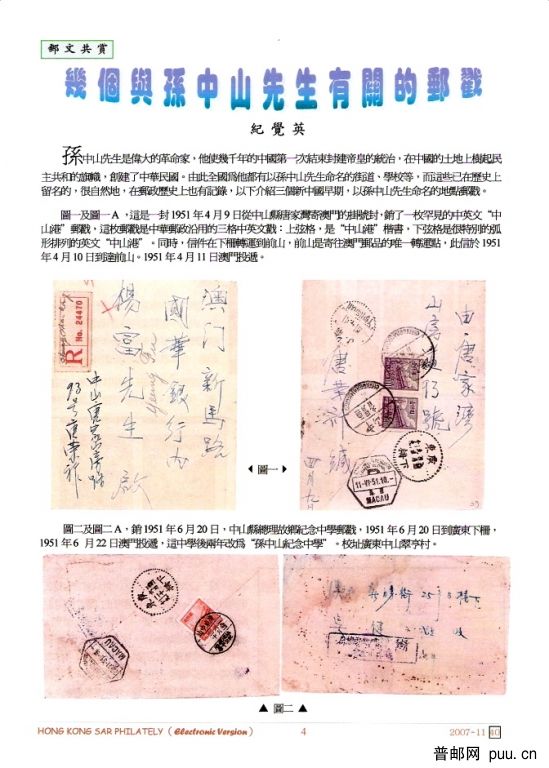 郵文共賞
幾個與孫中山先生有關的郵戳
紀覺英
孫中山先生是偉大的革命家,他使幾千年的中國第一次結束封建帝皇的統治,在中國的土地上樹起民
主共和的旗幟,創建了中華民國。由此全國為他都有以孫中山先生命名的街道、學校等,而這些已在歷史上
留名的,很自然地,在郵政歷史上也有記錄,以下介紹三個新中國早期,以孫中山先生命名的地點郵戳。
圖一及圖一A,這是一封1951年4月9日從中山縣唐家灣寄澳門的掛號封,銷了一枚罕見的中英文“中
山港”郵戳,這枚郵戳是中華郵政沿用的三格中英文戳:上弦格,是“中山港”楷書,下弦格是很特別的弧
形排列的英文“中山港”。同時,信件在下柵轉運到前山,前山是寄往澳門郵品的唯一轉運點,此信於1951
年4月10日到達前山。1951年4月11日澳門投遞。
R
No. 24470
澳门新馬路
國華銀行内
楊富先生 啟
由唐家灣
山房路
11-VI-51.10
MACAU
四月九日
◀圖一▶
圖二及圖二A,銷1951年6月20日,中山縣總理故鄉紀念中學郵戳,1951年6月20日到廣東下柵,
1951年6月22日澳門投遞,這中學後兩年改為“孫中山紀念中學”。校址廣東中山翠亨村。
MACAU
▲圖二▲
HONG KONG SAR PHILATELY ( Electronic Version )
4
2007-11 40
普邮网 puu.cn